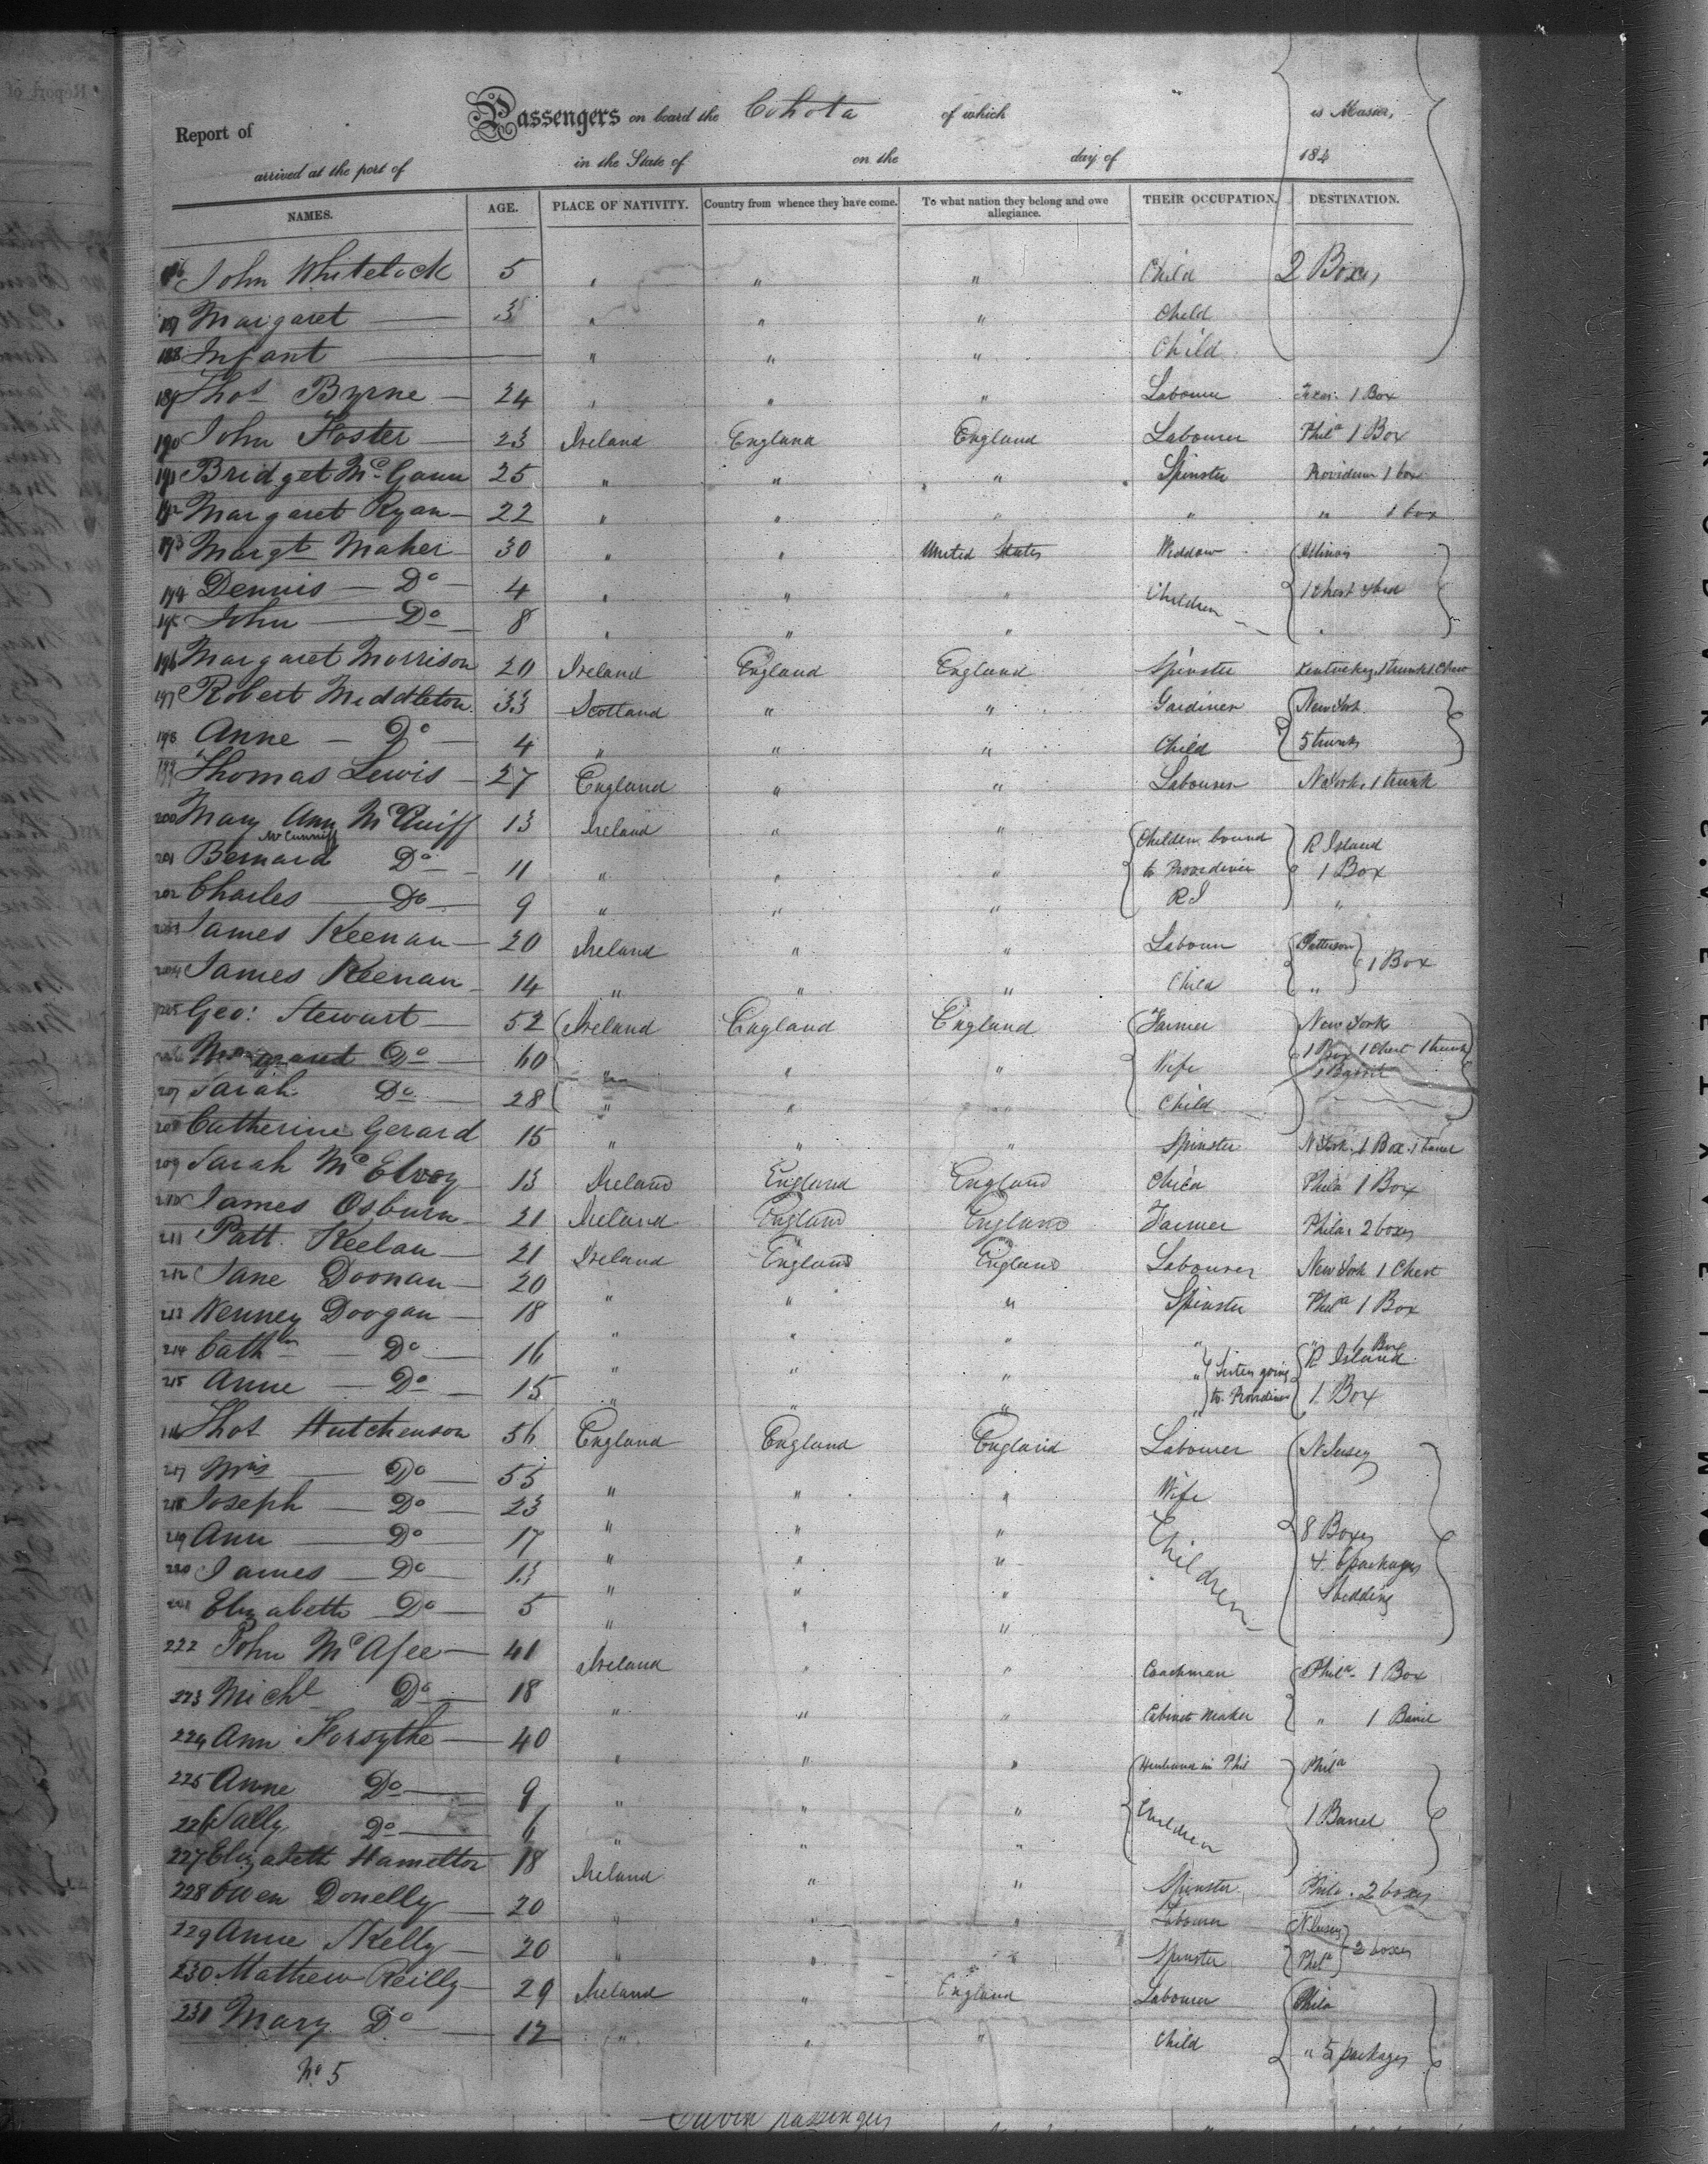 Report of Passengers on board the Cohota of which is Master,
arrived at the port of in the State of on the day of 184
NAMES. AGE. PLACE OF NATIVITY. Country from whence they have come. To what nation they belong and owe allegiance. THEIR OCCUPATION. DESTINATION.
186 John Whitelock 5 " " " Child 2 Boxes
187 Margaret — 3 " " " Child
188 Infant — " " " Child
189 Thos Byrne — 24 " " " Labourer 1 Box
190 John Foster — 23 Ireland England England Labourer Phila 1 Box
191 Bridget McGann 25 " " " Spinster Providence 1 box
192 Margaret Ryan — 22 " " " " " 1 box
193 Margt Maher 30 " " United States Widdow Illinois
194 Dennis — Do — 4 " " " Children 1 Chest & bed
195 John — Do 8 " " "
196 Margaret Morrison 20 Ireland England England Spinster Kentucky 1 trunk 1 Chest
197 Robert Middleton 33 Scotland " " Gardiner New York
198 Anne — Do — 4 " " " Child 5 trunks
199 Thomas Lewis — 27 England " " Labourer N York. 1 trunk
200 Mary Ann McQuiff 13 Ireland " " Children bound R Island
McCunniff
201 Bernard Do 11 " " " to Providence 1 Box
202 Charles — Do 9 " " " R I "
203 James Keenan — 20 Ireland " " Labourer Patterson 1 Box
204 James Keenan 14 " " " Child "
205 Geo: Stewart — 52 Ireland England England Farmer New York
206 Do 60 " " " Wife 1 Box 1 Chest 1 trunk
1 Barrel
207 Sarah Do 28 " " " Child
208 Catherine Gerard 15 " " " Spinster N York. 1 Box. 1 barrel
209 Sarah McElroy 13 Ireland England England Child Phila 1 Box
210 James Osburn 21 Ireland England England Farmer Phila. 2 boxes
211 Patt. Keelan — 21 Ireland England England Labourer New York 1 Chest
212 Jane Doonan — 20 " " " Spinster Phila 1 Box
213 Nenney Doogan — 18 " " " " " 1 Box
214 Cathn — Do 16 " " " " Sisters going R Island
215 Anne — Do 15 " " " " to Providence 1 Box
216 Thos Hutchenson 56 England England England Labourer N Jersey
217 Mrs — Do 55 " " " Wife
218 Joseph — Do 23 " " " Children 8 Boxes
219 Ann — Do 17 " " " & 6 packages
220 James — Do 13 " " " bedding
221 Elizabeth Do 5 " " "
222 John McAfee — 41 Ireland " " Coachman Phila. 1 Box
223 Michl Do 18 " " " Cabinet Maker " 1 Barrel
224 Ann Forsythe — 40 " " " Husband in Phil Phila
225 Anne Do 9 " " " Children 1 Barrel
226 Sally Do 6 " " "
227 Elizabeth Hamelton 18 Ireland " " Spinster Phila. 2 boxes
228 Owen Donelly 20 " " " Labourer N Jersey
229 Anne Skelly — 20 " " " Spinster Phila 2 boxes
230 Mathew Reilly 29 Ireland " England Labourer Phila
231 Mary Do — 12 " " " Child " 5 packages
No 5
passengers